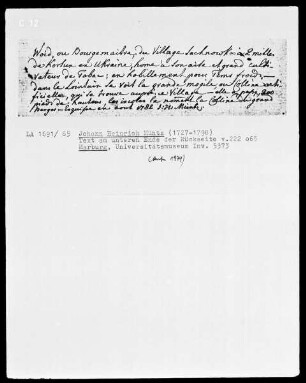 C 12
Woid, ou Bourgemaitre, du Village Sachnowka, 2 milles
de Korsun en Ukraine, home a son aise et grand culti-
vateur de Tabac; en habillement pour Tems froid,
dans le Lointain se voit la grande mogile ou Colline arti-
ficielle, qui se trouve auprès ce Village
pieds de hauteur, les la nomment la Colline
en avril 1782 J:H: Müntz
LA 1691/ 65 Johann Heinrich Müntz (1727-1798)
Text am unteren Ende der Rückseite v.222 o65
Marburg, Universitätsmuseum Inv. 5373